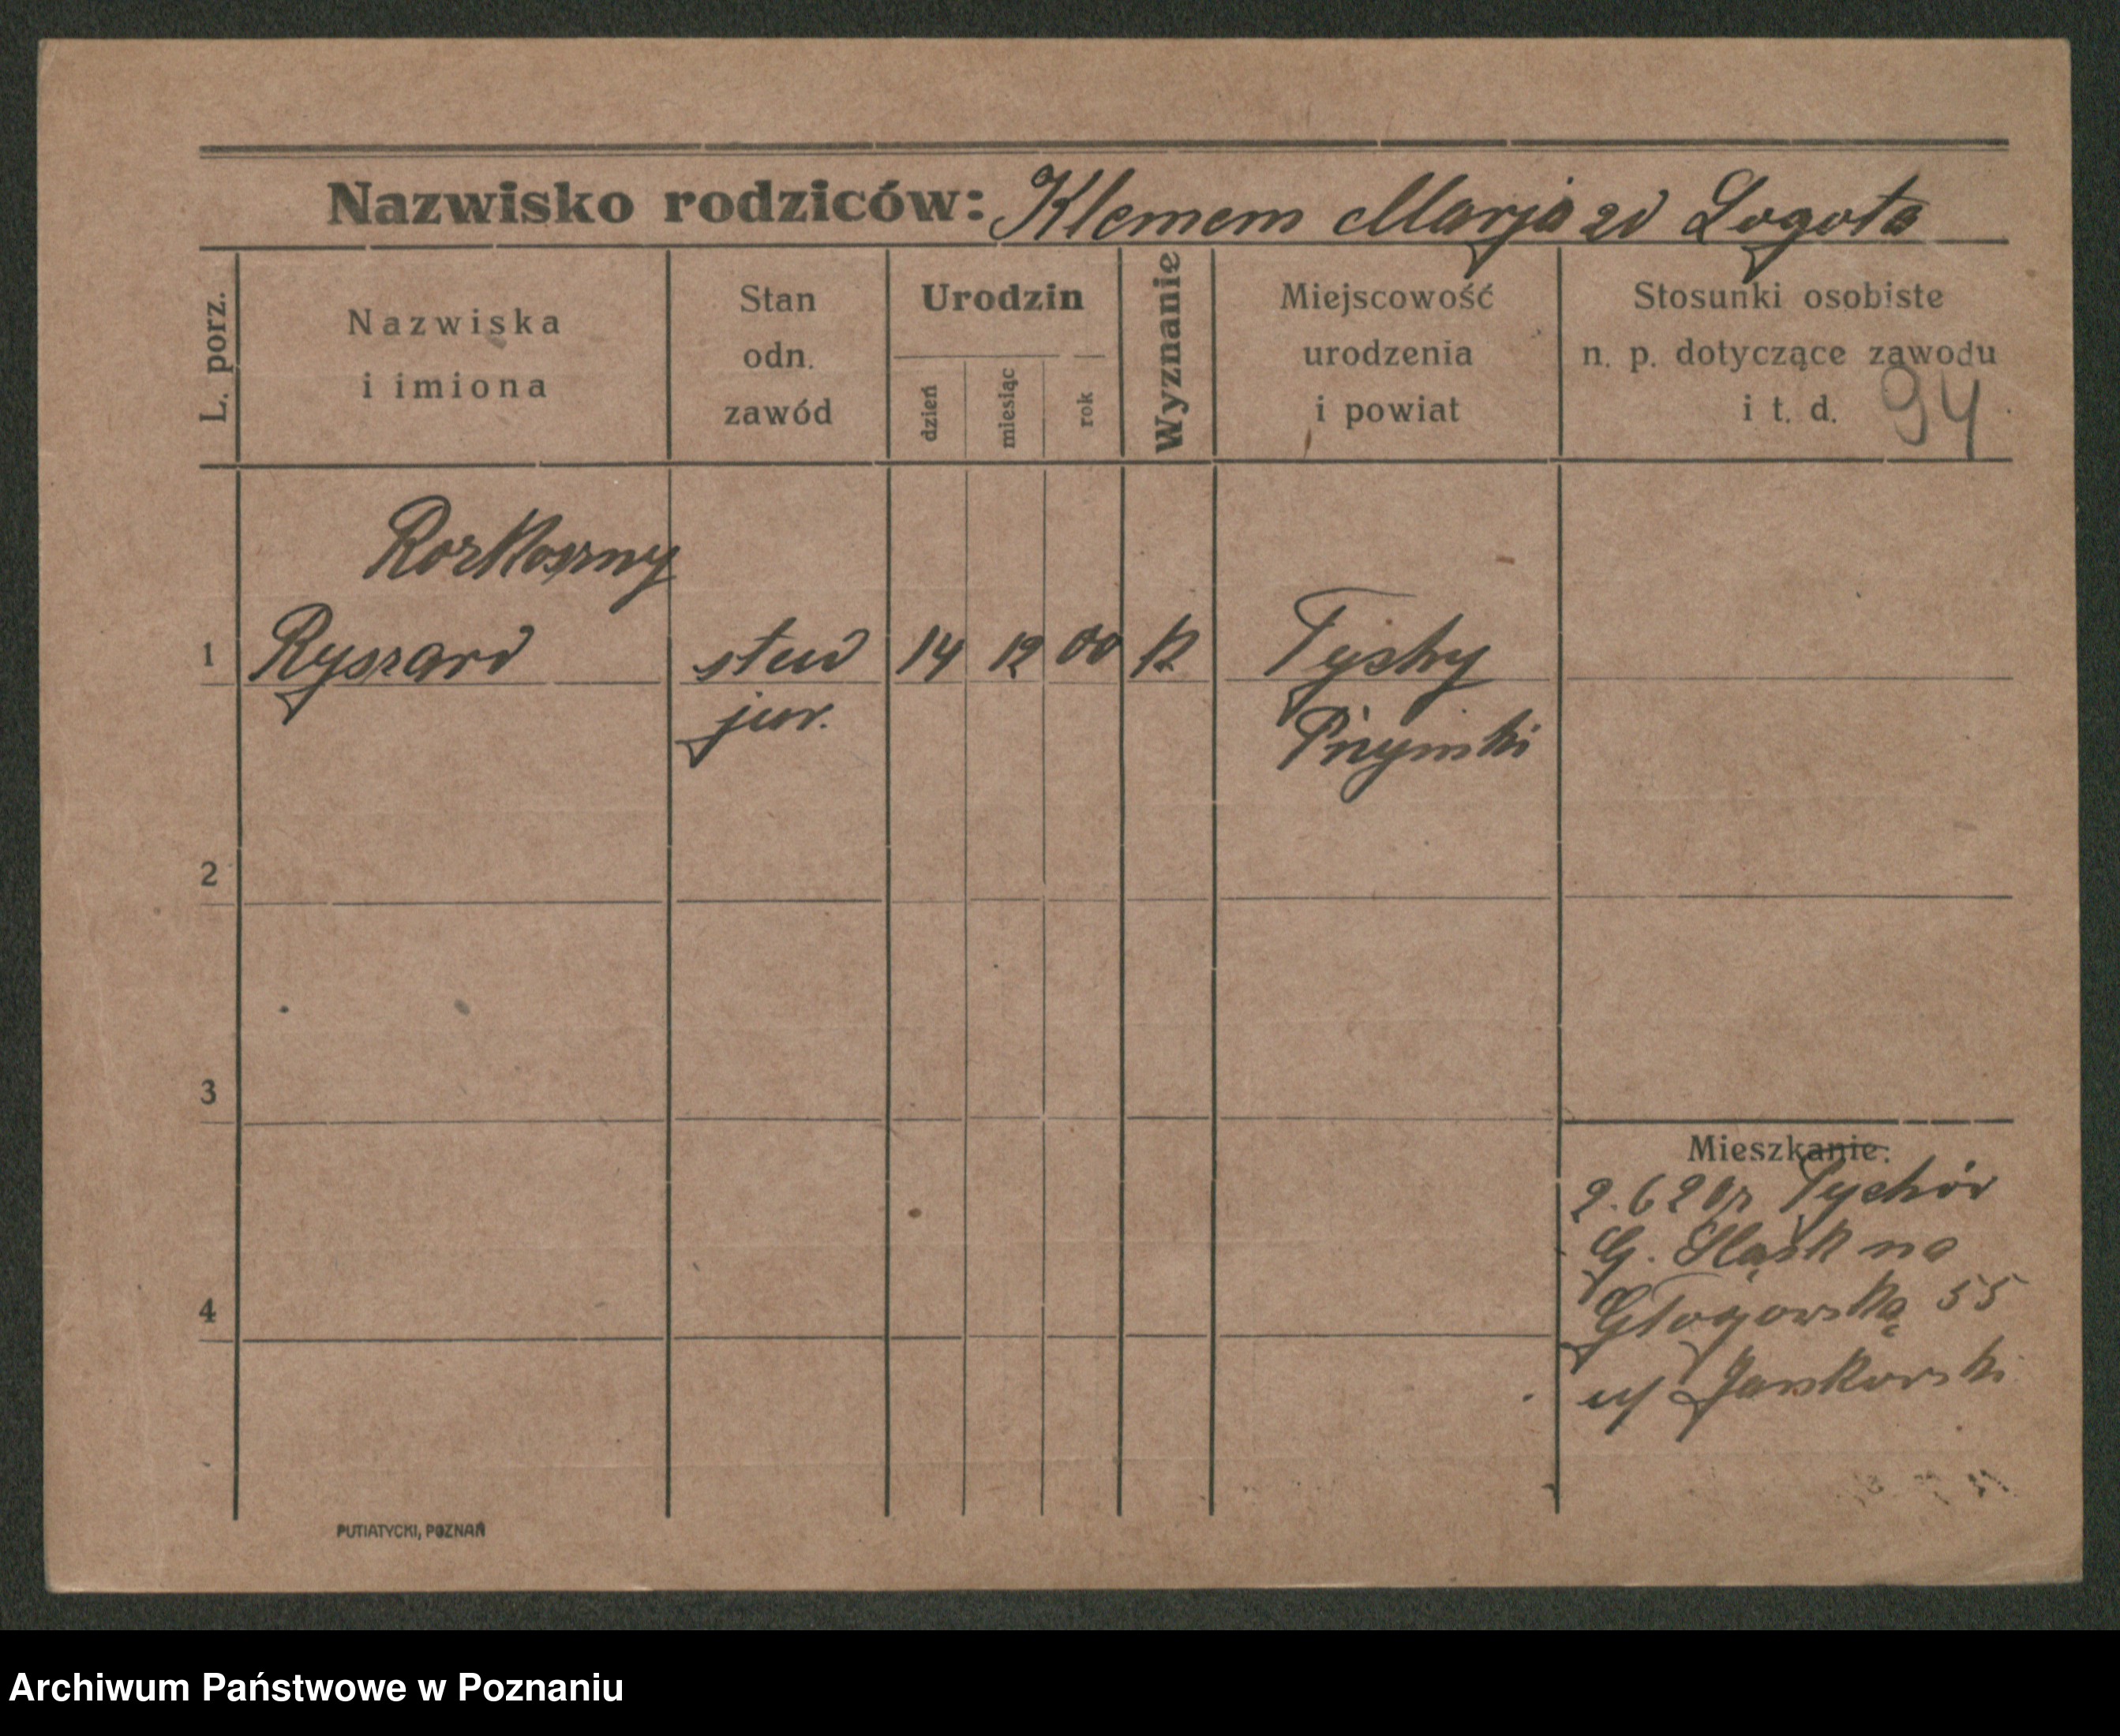 Nazwisko rodziców: Klemem Marja zd Logota
L. porz.
Nazwiska
i imiona
Stan
odn.
zawód
Urodzin
dzień
miesiąc
rok
Wyznanie
Miejscowość
urodzenia
i powiat
Stosunki osobiste
n. p. dotyczące zawodu
i t. d.
94
Rozkoszny
1 Ryszard stud 14 12 00 k Tychy
jur.
2
3
4
Mieszkanie:
2.6 Tychów
G. Śląsk na
Głogowską 55
u/ Jankowski
PUTIATYCKI, POZNAŃ
Archiwum Państwowe w Poznaniu